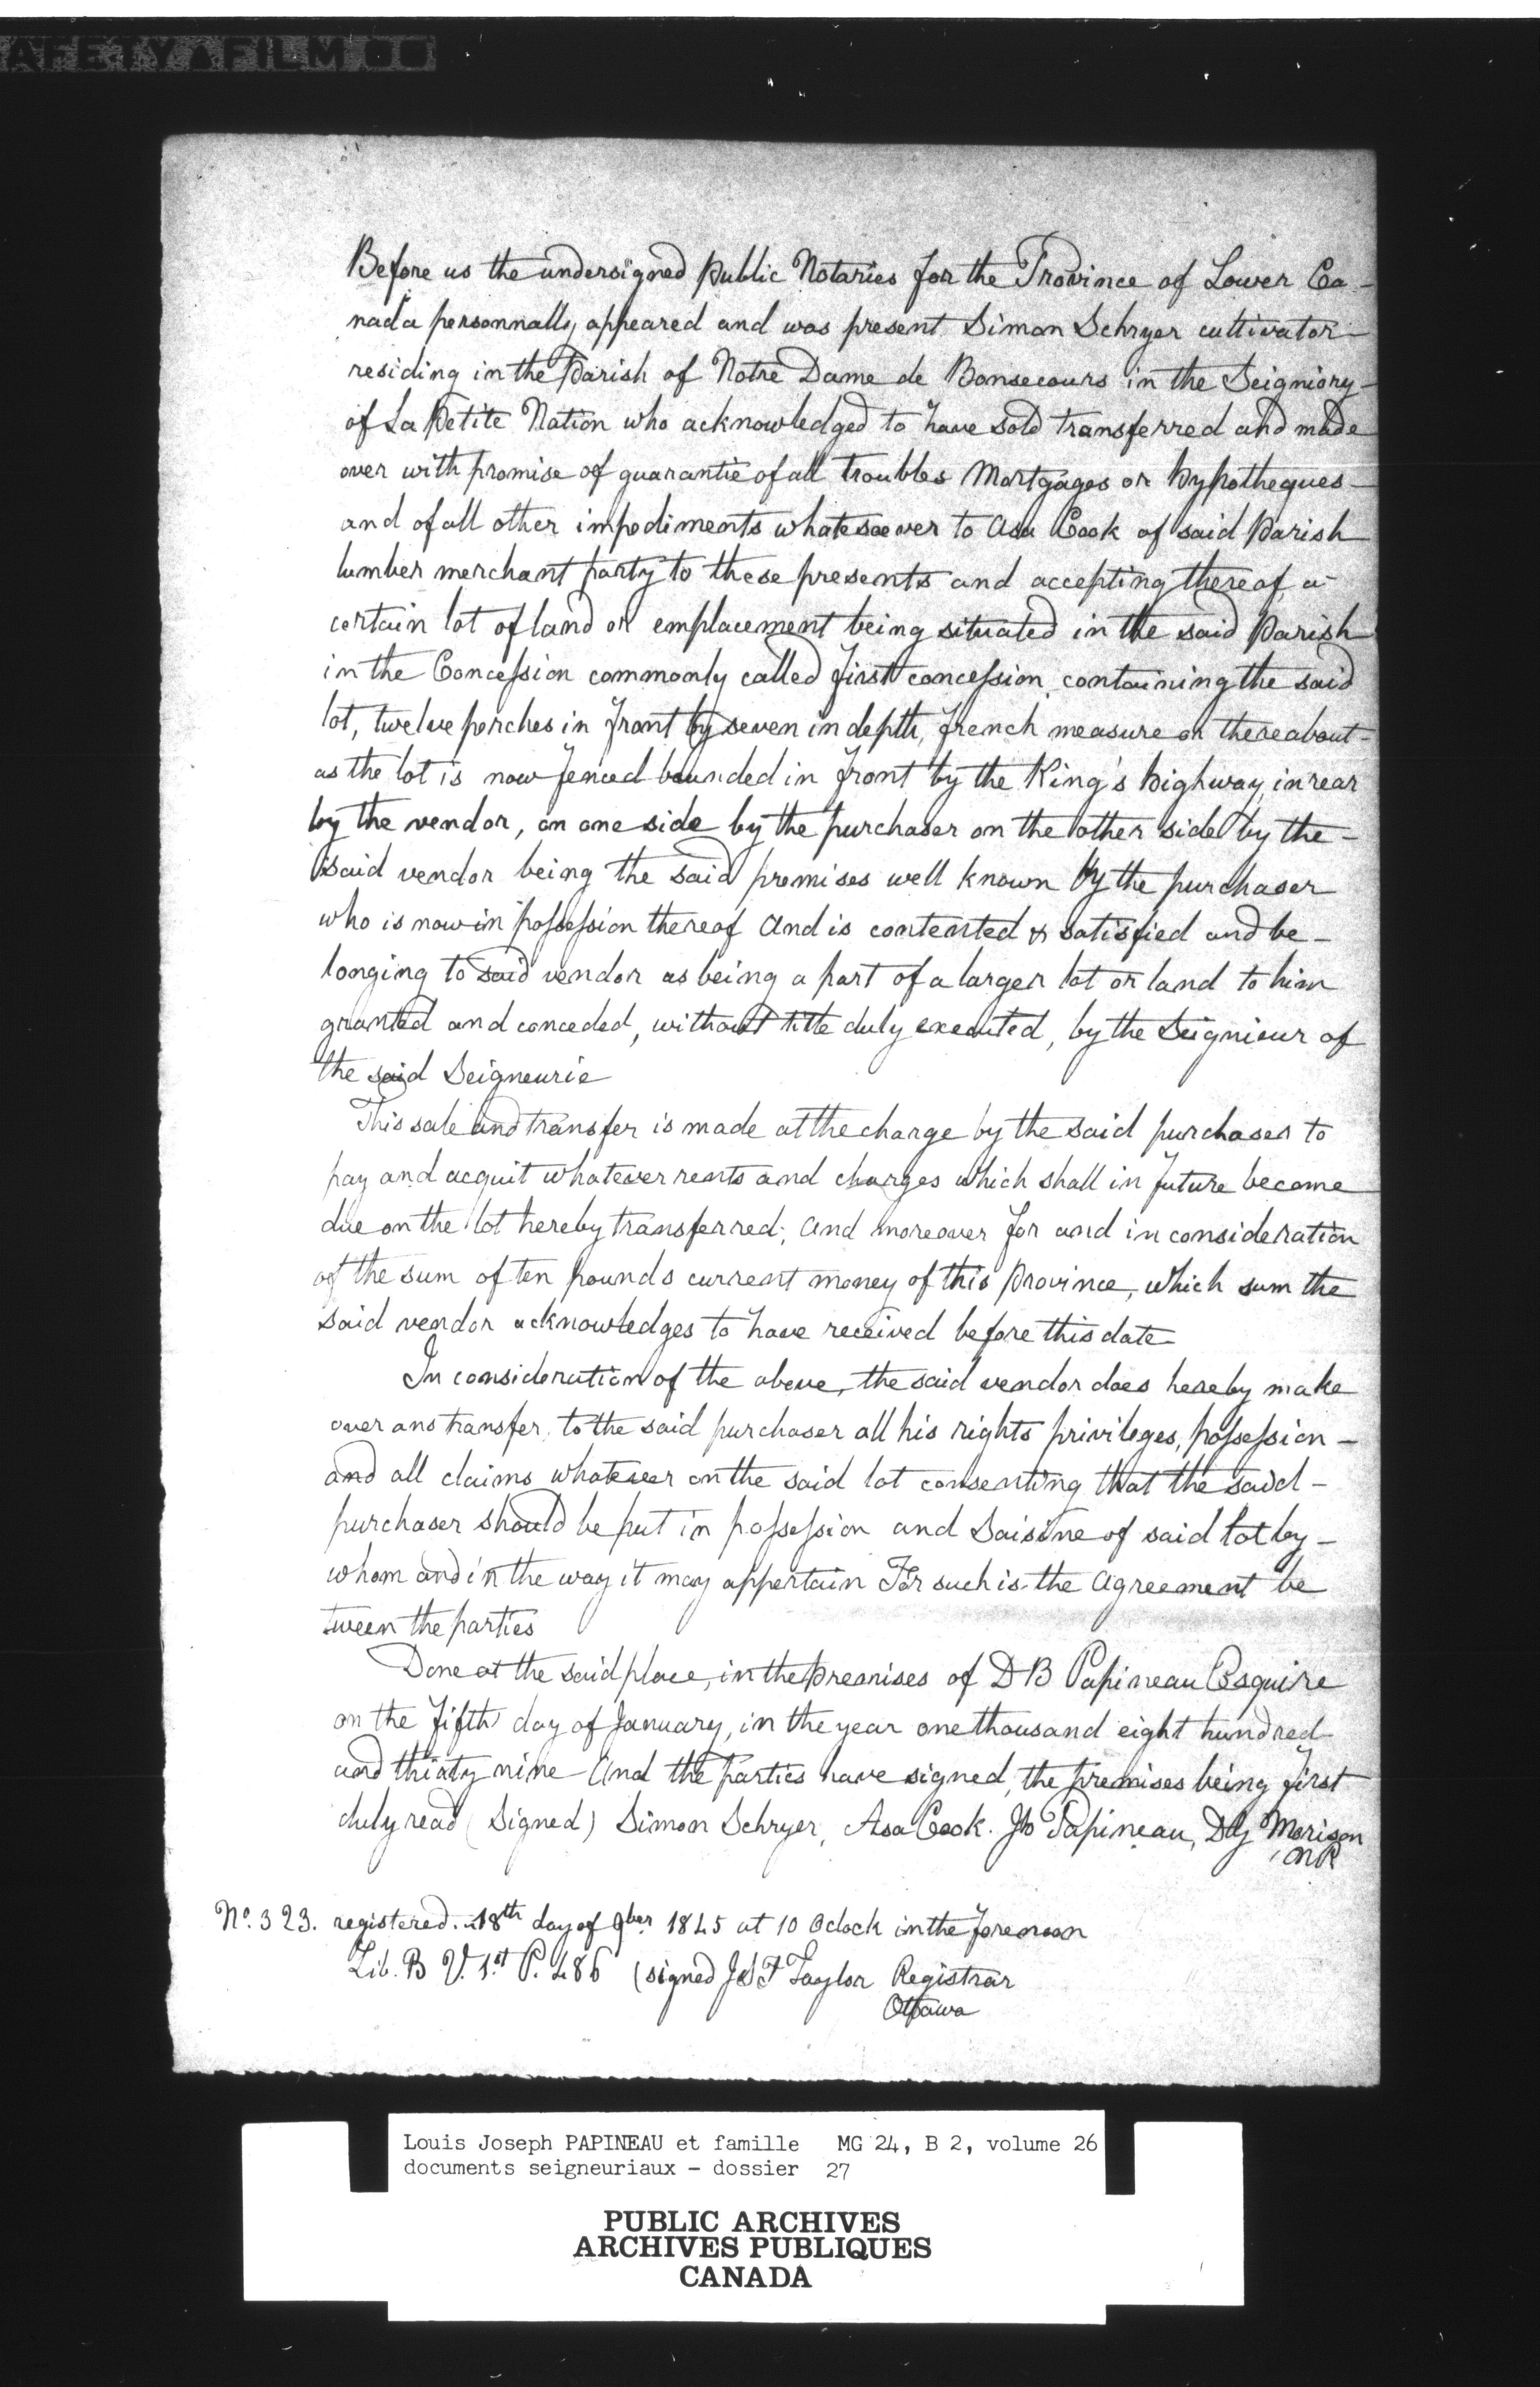 SAFETY▲FILM ●■
Before us the undersigned Public Notaries for the Province of Lower Ca-
nada personnally appeared and was present Simon Schryer cultivator
residing in the Parish of Notre Dame de Bonsecours in the Seigniory
of La Petite Nation who acknowledged to have sold transferred and made
over with promise of guarantie of all troubles Mortgages or hypotheques
and of all other impediments whatesoever to Asa Cook of said Parish
lumber merchant party to these presents and accepting thereof a
certain lot of land or emplacement being situated in the said Parish
in the Concession commonly called first concession, containing the said
lot, twelve perches in front by seven in depth, french measure or thereabout
as the lot is now fenced bounded in front by the King's highway, in rear
by the vendor, on one side by the purchaser on the other side by the
said vendor being the said premises well known by the purchaser
who is now in possession thereof And is contented & satisfied and be-
longing to said vendor as being a part of a larger lot or land to him
granted and conceded, without title duly executed, by the Seignieur of
the said Seigneurie
This sale and transfer is made at the charge by the said purchaser to
pay and acquit whatever rents and charges which shall in future become
due on the lot hereby transferred; And moreover for and in consideration
of the sum of ten pounds current money of this Province, which sum the
said vendor acknowledges to have received before this date
In consideration of the above, the said vendor does hereby make
over ans transfer, to the said purchaser all his rights privileges, possession
and all claims whatever on the said lot consenting that the said
purchaser should be put in possession and Saisine of said lot by
whom and in the way it may appertain For such is the Agreement be
tween the parties
Done at the said place, in the premises of D B Papineau Esquire
on the fifth day of January, in the year one thousand eight hundred
and thirty nine And the parties have signed, the premises being first
duly read (Signed) Simon Schryer, Asa Cook. Jh Papineau, Morison
NP
No. 323. registered. 18th day of 9ber 1845 at 10 Oclock in the forenoon
Lib. B V. 1st P. 486 (signed Taylor Registrar
Ottawa
Louis Joseph PAPINEAU et famille MG 24, B 2, volume 26
documents seigneuriaux - dossier 27
PUBLIC ARCHIVES
ARCHIVES PUBLIQUES
CANADA